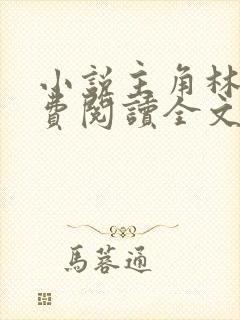 小說主角林
費閱讀全文
馬蓉通